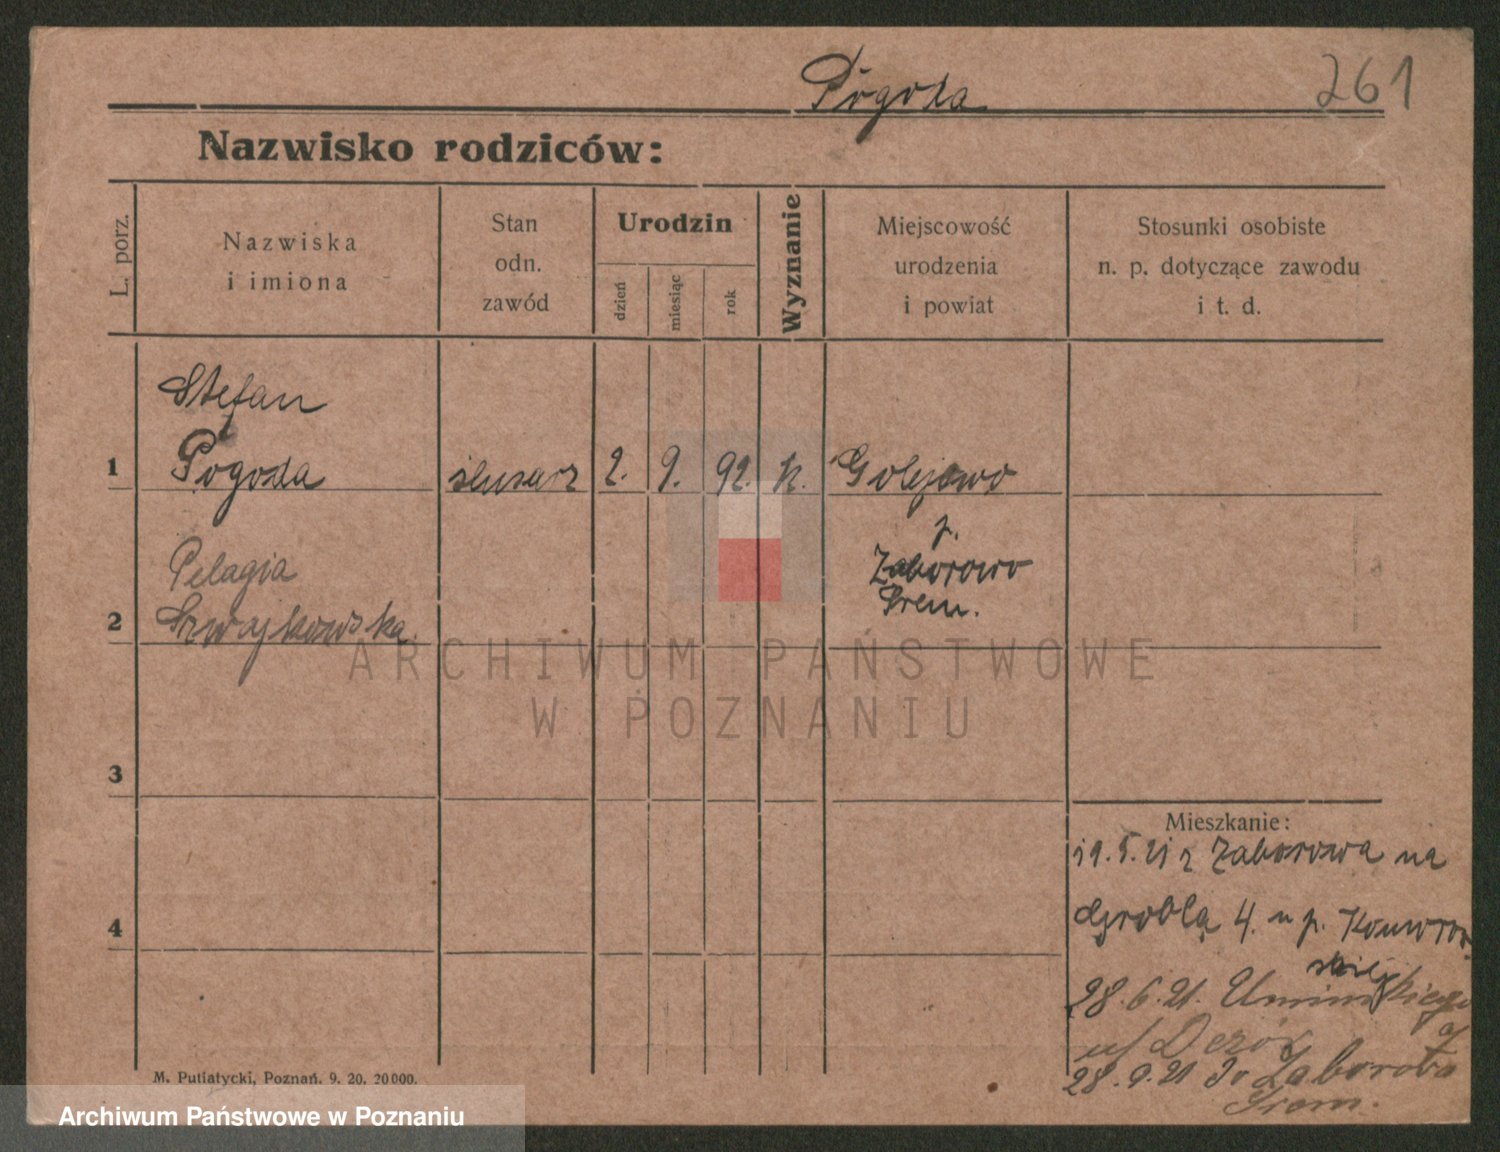 Pogoda
261
Nazwisko rodziców:
L. porz.
Nazwiska
i imiona
Stan
odn.
zawód
Urodzin
dzień
miesiąc
rok
Wyznanie
Miejscowość
urodzenia
i powiat
Stosunki osobiste
n. p. dotyczące zawodu
i t. d.
Stefan
1 Pogoda ślusarz 2. 9. 92. k. Golejewo
p.
Pelagia Zaborowo
Śrem.
2 Szwajkowska
ARCHIWUM PAŃSTWOWE
W POZNANIU
3
Mieszkanie:
19.5.21 z Zaborowa na
4 Groblą 4. u p.
28.6.21. Umińskiego
u/
28.9.21 do Zaborowa
Śrem.
M. Putiatycki, Poznań. 9. 20. 20000.
Archiwum Państwowe w Poznaniu